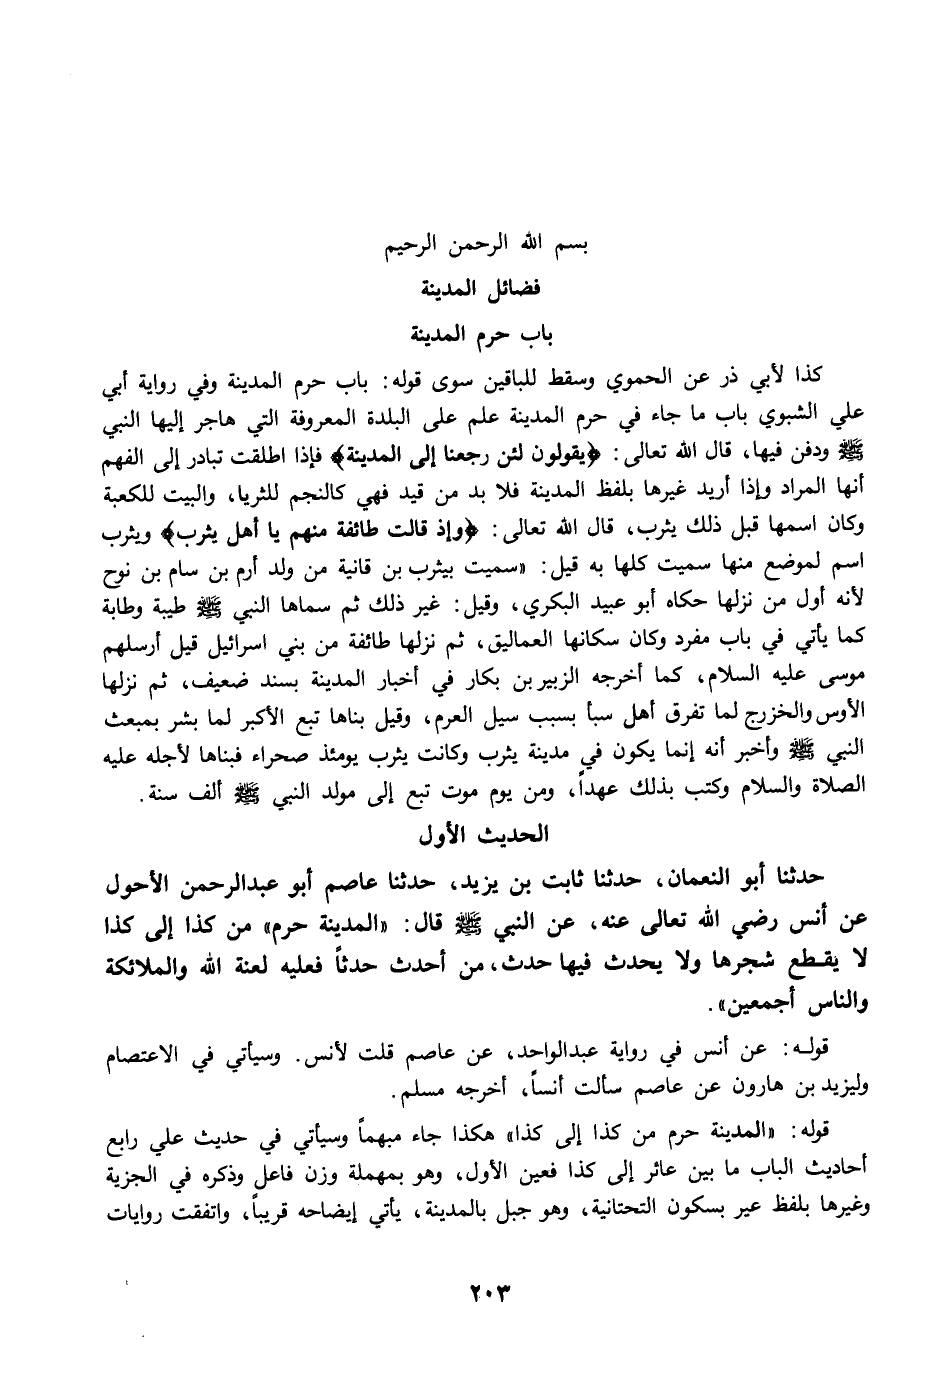 بسم الله الرحمن الرحيم
فضائل المدينة
باب حرم المدينة
كذا لأبي ذر عن الحموي وسقط للباقين سوى قوله: باب حرم المدينة وفي رواية أبي
علي الشبوي باب ما جاء في حرم المدينة علم على البلدة المعروفة التي هاجر إليها النبي
ﷺ ودفن فيها، قال الله تعالى: ﴿يقولون لئن رجعنا إلى المدينة﴾ فإذا اطلقت تبادر إلى الفهم
أنها المراد وإذا أريد غيرها بلفظ المدينة فلا بد من قيد فهي كالنجم للثريا، والبيت للكعبة
وكان اسمها قبل ذلك يثرب، قال الله تعالى: ﴿وإذ قالت طائفة منهم يا أهل يثرب﴾ ويثرب
اسم لموضع منها سميت كلها به قيل: «سميت بيثرب بن قانية من ولد أرم بن سام بن نوح
لأنه أول من نزلها حكاه أبو عبيد البكري، وقيل: غير ذلك ثم سماها النبي ﷺ طيبة وطابة
كما يأتي في باب مفرد وكان سكانها العماليق، ثم نزلها طائفة من بني اسرائيل قيل أرسلهم
موسى عليه السلام، كما أخرجه الزبير بن بكار في أخبار المدينة بسند ضعيف، ثم نزلها
الأوس والخزرج لما تفرق أهل سبأ بسبب سيل العرم، وقيل بناها تبع الأكبر لما بشر بمبعث
النبي ﷺ وأخبر أنه إنما يكون في مدينة يثرب وكانت يثرب يومئذ صحراء فبناها لأجله عليه
الصلاة والسلام وكتب بذلك عهداً، ومن يوم موت تبع إلى مولد النبي ﷺ ألف سنة.
الحديث الأول
حدثنا أبو النعمان، حدثنا ثابت بن يزيد، حدثنا عاصم أبو عبدالرحمن الأحول
عن أنس رضي الله تعالى عنه، عن النبي ﷺ قال: «المدينة حرم» من كذا إلى كذا
لا يقطع شجرها ولا يحدث فيها حدث، من أحدث حدثاً فعليه لعنة الله والملائكة
والناس أجمعين».
قوله: عن أنس في رواية عبدالواحد، عن عاصم قلت لأنس. وسيأتي في الاعتصام
وليزيد بن هارون عن عاصم سألت أنساً، أخرجه مسلم.
قوله: «المدينة حرم من كذا إلى كذا» هكذا جاء مبهماً وسيأتي في حديث علي رابع
أحاديث الباب ما بين عائر إلى كذا فعين الأول، وهو بمهملة وزن فاعل وذكره في الجزية
وغيرها بلفظ عير بسكون التحتانية، وهو جبل بالمدينة، يأتي إيضاحه قريباً، واتفقت روايات
٢٠٣